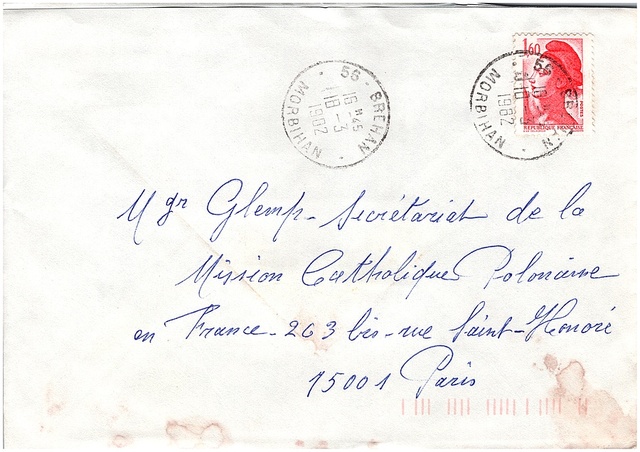 1,60
RÉPUBLIQUE FRANÇAISE
56 - BREHAN
16 H45
18 -3
1982
MORBIHAN
56
1982
MORBIHAN
Mgr Glemp - Secrétariat de la
Mission Catholique Polonaise
en France - 263 bis - rue Saint-Honoré
75001 Paris